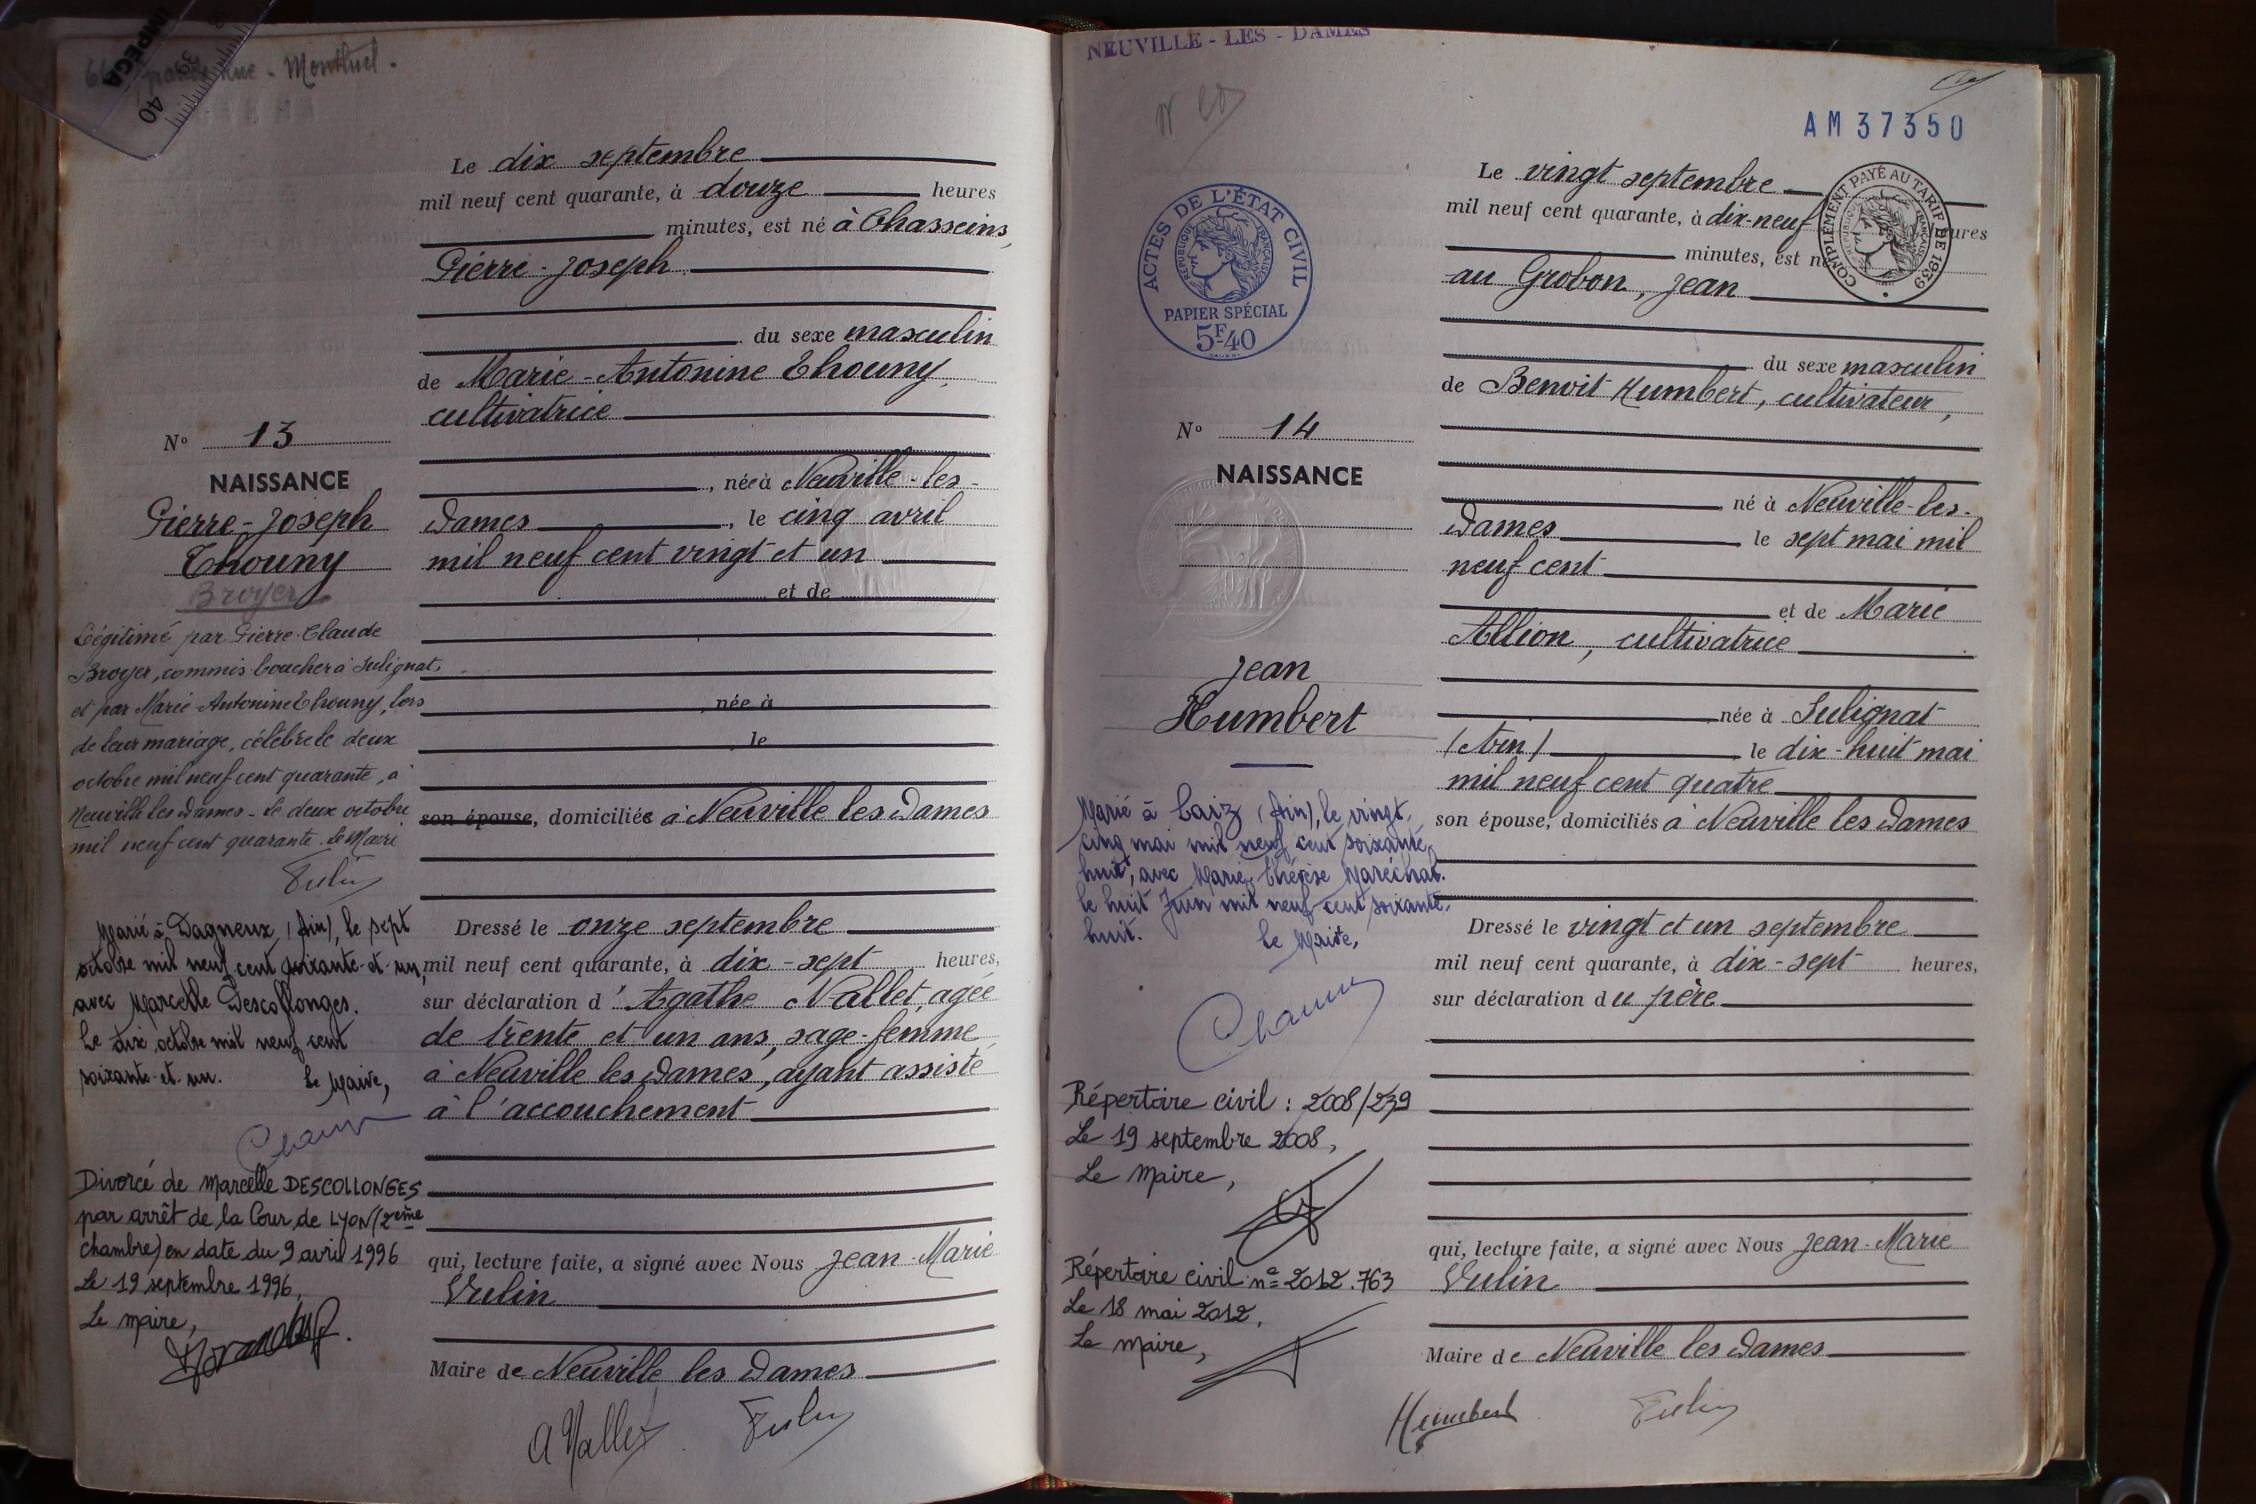 Grande Rue - Montluel.
Le dix septembre
mil neuf cent quarante, à douze heures
minutes, est né à Chasseins,
Pierre-Joseph
du sexe masculin
de Marie-Antonine Thouny,
cultivatrice
née à Neuville-les-
Dames, le cinq avril
mil neuf cent vingt et un
et de
née à
le
son épouse, domiciliée à Neuville les Dames
Dressé le onze septembre
mil neuf cent quarante, à dix-sept heures,
sur déclaration d'Agathe Nallet, agée
de trente et un ans, sage-femme
à Neuville les Dames, ayant assisté
à l'accouchement
qui, lecture faite, a signé avec Nous Jean-Marie
Vulin
Maire de Neuville les Dames
A Nallet Vulin
N° 13
NAISSANCE
Pierre-Joseph
Thouny
Broyer
Légitimé par Pierre-Claude
Broyer, commis boucher à Sulignat,
et par Marie-Antonine Thouny, lors
de leur mariage, célébré le deux
octobre mil neuf cent quarante, à
Neuville les Dames - le deux octobre
mil neuf cent quarante. Le Maire
Vulin
Marié à Dagneux (Ain), le sept
octobre mil neuf cent soixante-et-un,
avec Marcelle Descollonges.
Le dix octobre mil neuf cent
soixante-et-un. Le Maire,
Divorcé de Marcelle DESCOLLONGES
par arrêt de la Cour de LYON (2eme
chambre) en date du 9 avril 1996
Le 19 septembre 1996,
Le maire,
NEUVILLE-LES-DAMES
AM 37350
COMPLÉMENT PAYÉ AU TARIF DE 1939
ACTES DE L'ÉTAT CIVIL
RÉPUBLIQUE FRANÇAISE
PAPIER SPÉCIAL
5F40
N° 14
NAISSANCE
Jean
Humbert
Marié à Laiz (Ain), le vingt-
cinq mai mil neuf cent soixante-
huit, avec Marie-Thérèse Maréchal.
Le huit Juin mil neuf cent soixante-
huit. Le Maire,
Répertoire civil : 2008/239
Le 19 septembre 2008,
Le Maire,
Répertoire civil n° 2012.763
Le 18 mai 2012,
Le Maire,
Le vingt septembre
mil neuf cent quarante, à dix-neuf heures
minutes, est né
au Grobon, Jean
du sexe masculin
de Benoit Humbert, cultivateur,
né à Neuville-les-
Dames le sept mai mil
neuf cent
et de Marie
Allion, cultivatrice
née à Sulignat
(Ain) le dix-huit mai
mil neuf cent quatre
son épouse, domiciliés à Neuville les Dames
Dressé le vingt et un septembre
mil neuf cent quarante, à dix-sept heures,
sur déclaration du père
qui, lecture faite, a signé avec Nous Jean-Marie
Vulin
Maire de Neuville les Dames
Humbert Vulin